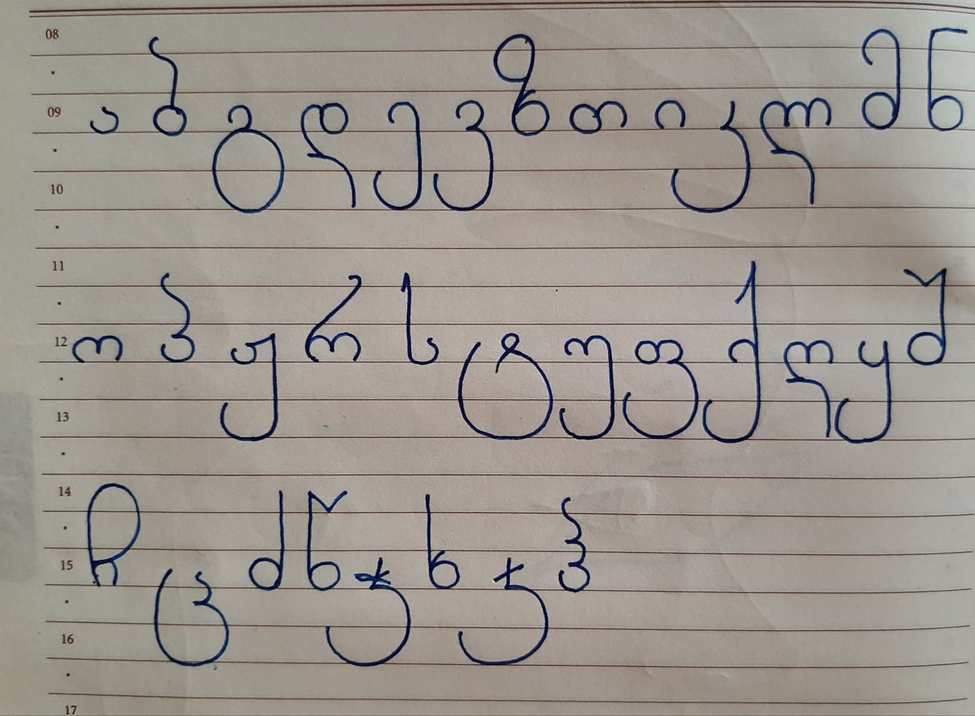 08
09 ა ბ გ დ ე ვ ზ თ ი კ ლ მ ნ
10
11
12 ო პ ჟ რ ს ტ უ ფ ქ ღ ყ შ
13
14
15 ჩ ც ძ წ ჭ ხ ჯ ჰ
16
17